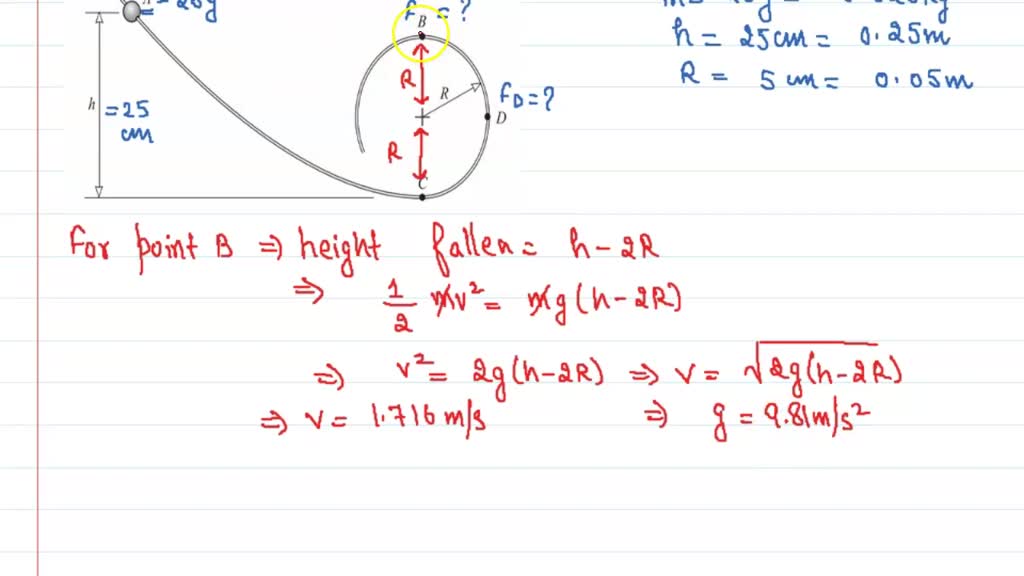 B
R
R
D
R
C
h = 25 cm
F_D = ?
h = 25 cm = 0.25m
R = 5 cm = 0.05m
For point B ⇒ height fallen = h - 2R
⇒ 1/2 mv² = mg(h - 2R)
⇒ v² = 2g(h - 2R) ⇒ v = √2g(h - 2R)
⇒ v = 1.716 m/s ⇒ g = 9.81m/s²